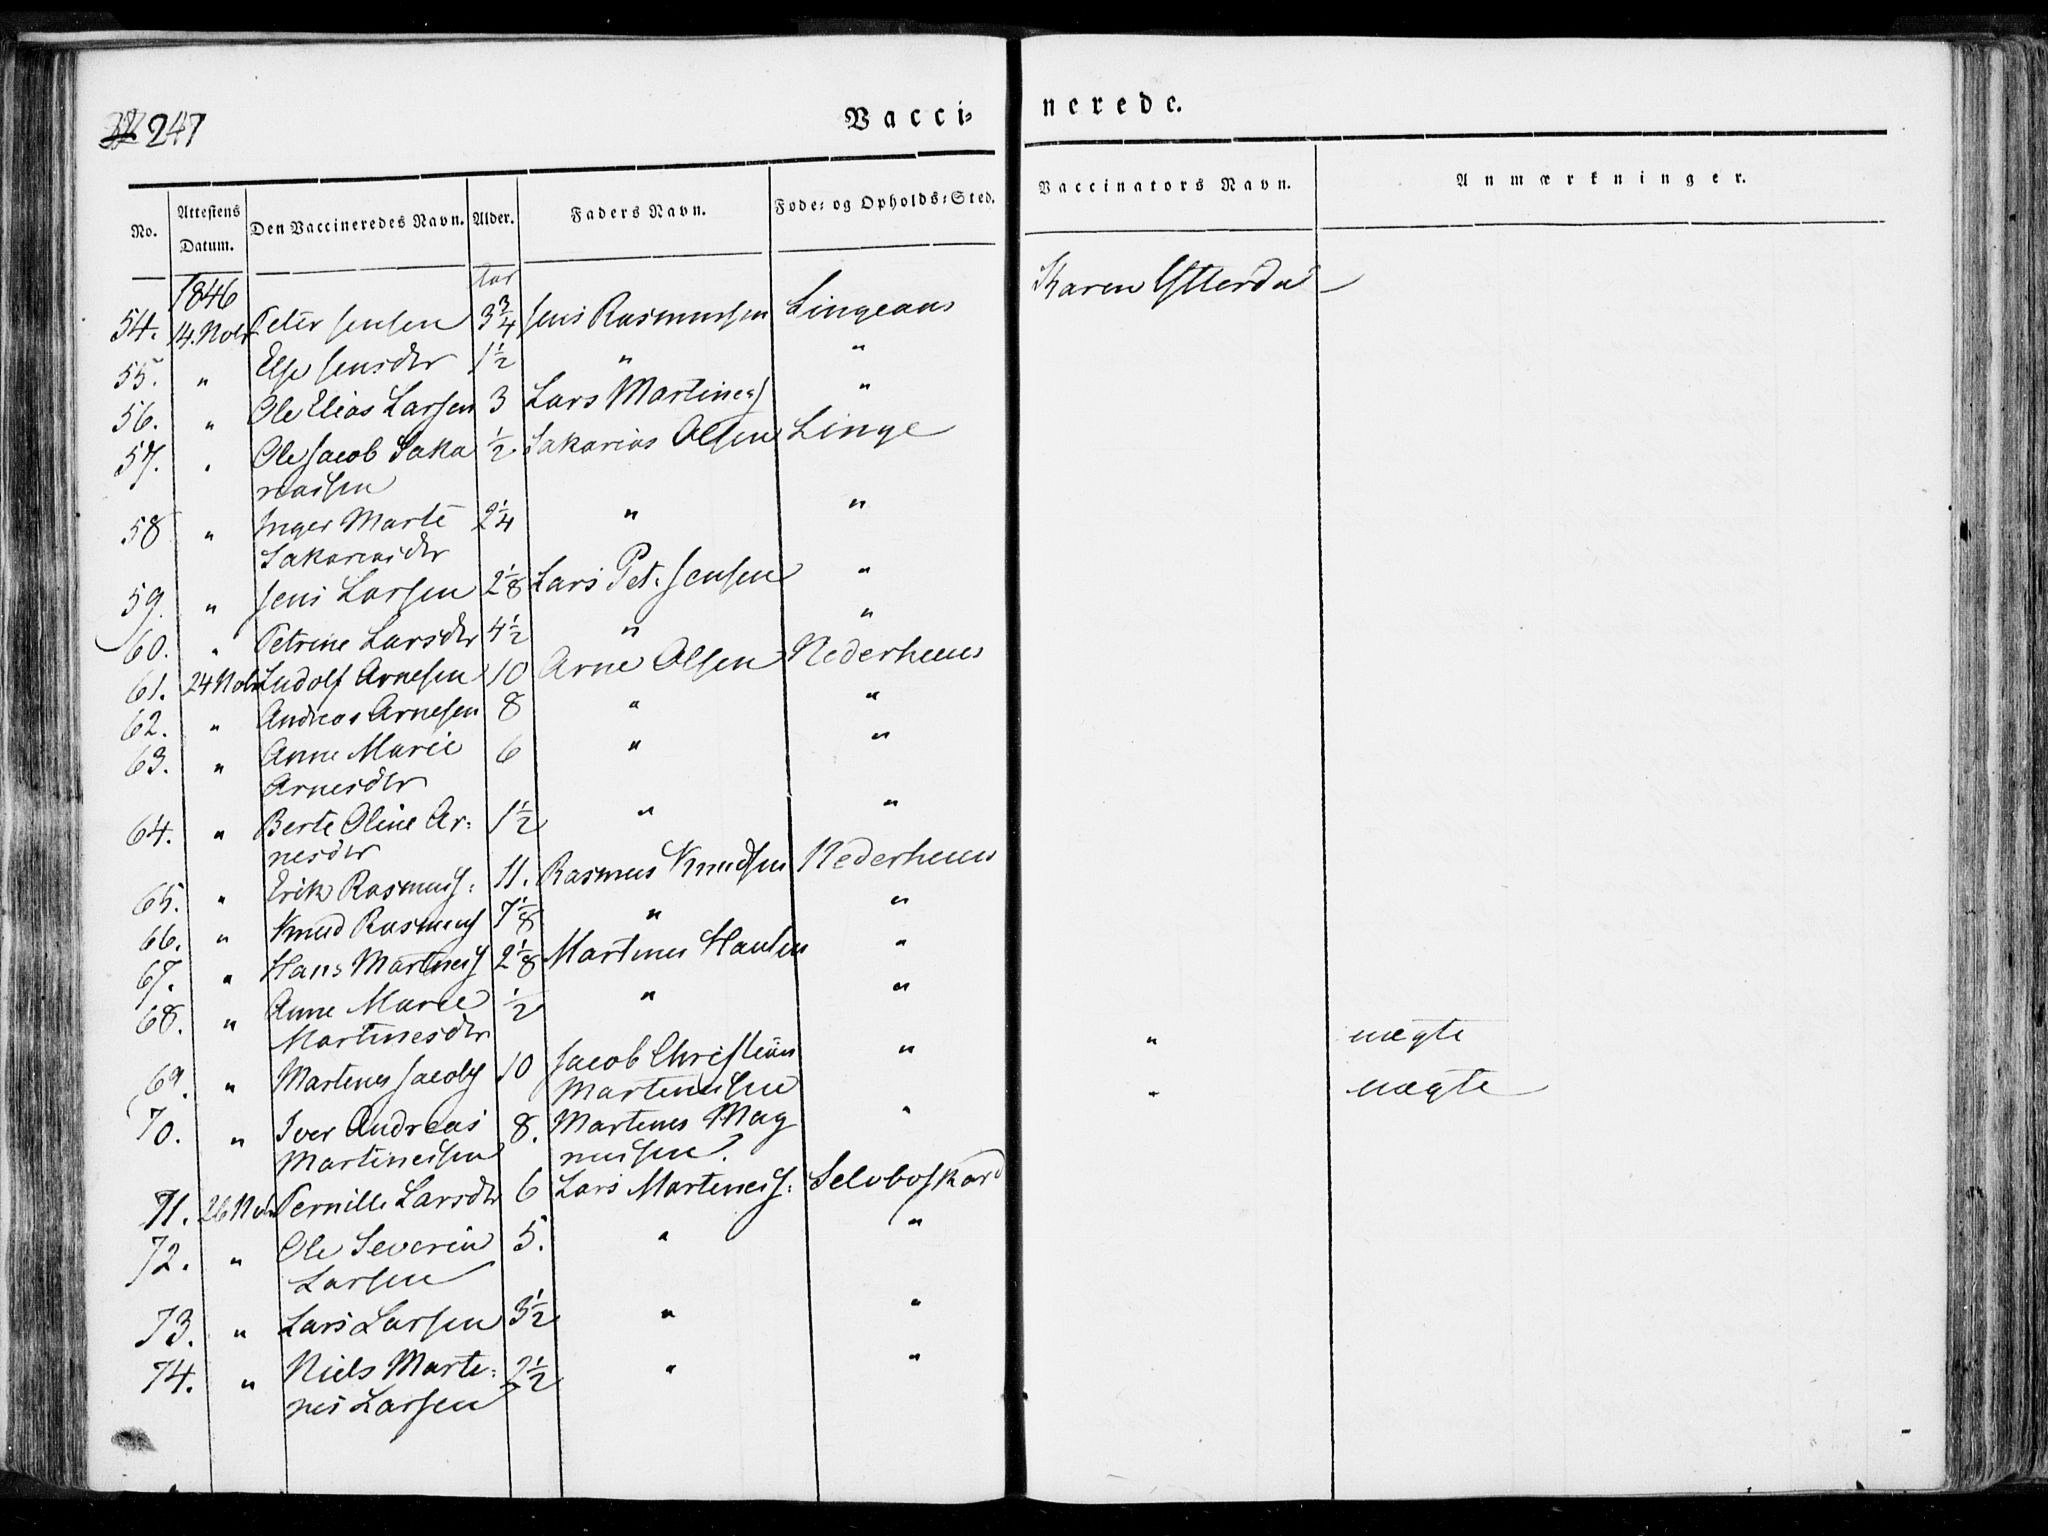 247
Vacci= nerede.
No. Attestens Datum. Den Vaccineredes Navn. Alder. Faders Navn. Føde= og Opholds=Sted. Vaccinators Navn. Anmærkninger.
1846 Aar
54. 14. Nobr Peter Jensen 3 3/4 Jens Rasmussen Lingeaas Karen Ytterdal
55. " Else Jensdtr 1 1/2 " "
56. " Ole Elias Larsen 3 Lars Martines "
57. " Ole Jacob Saka 1/2 Sakarias Olsen Linge
reassen
58 " Inger Marte 2 1/4 " "
Sakariasdtr
59. " Jens Larsen 2 1/8 Lars Pet. Jensen "
60. " Petrine Larsdtr 4 1/2 " "
61. 24 Nobr Ludolf Arnesen 10 Arne Olsen Nederheem
62. " Andreas Arnesen 8 " "
63. " Anne Marie 6 " "
Arnesdtr
64. " Berte Oline Ar= 1 1/2 " "
nesdtr
65. " Erik Rasmuss: 11. Rasmus Knudsen Nederheem
66. " Knud Rasmuss 7 1/8 " "
67. " Hans Martines 2 1/8 Martines Hansen "
68. " Anne Marie 1/2 " "
Martinesdtr
69. " Martines Jacobs 10 Jacob Christian " " uægte
Martinussen
70. " Iver Andreas 8. Martines Mag " " uægte
Martinessen nussen.
71. 26 Nobr Pernille Larsdtr 6 Lars Martiness: Selvboskard
72. " Ole Severin 5. " "
Larsen
73. " Lars Larsen 3 1/2 " "
74. " Niels Marti= 2 1/2 " "
nes Larsen